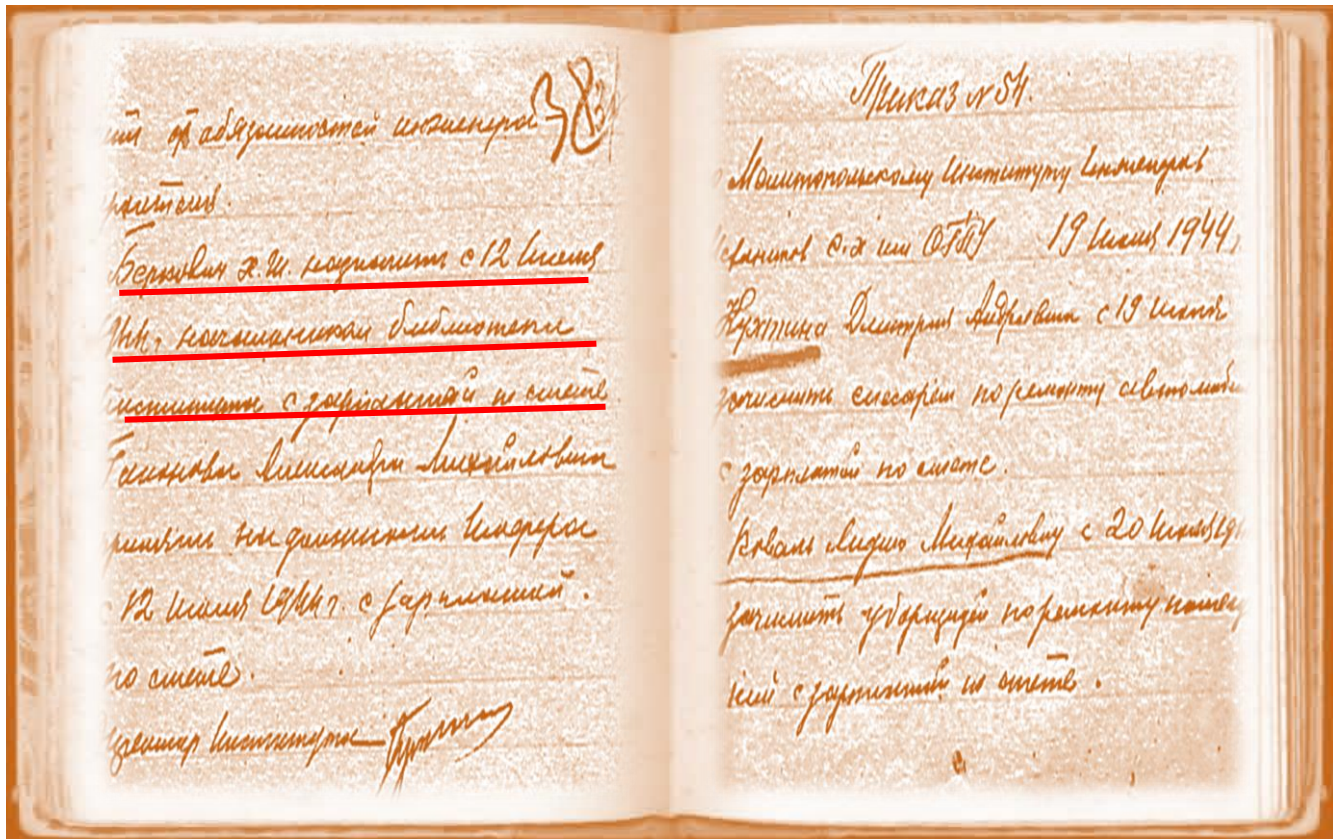 от обязанностей инженера 38
Беркович Х.И. назначить с 12 Июля
начальником библиотеки
института с зарплатой по смете.
Александра Михайловича
на должность Шофера
12 Июля 1944 г. с зарплатой
по смете.
Института
Приказ № 54.
Мелитопольскому Институту Инженеров
с.х им ОГПУ 19 Июля 1944
Дмитрия Андреевича с 19 июля
зачислить слесарем по ремонту автомоби
с зарплатой по смете.
Коваль Лидию Михайловну с 20 Июля 19
зачислить уборщицей по ремонту помещ
ний с зарплатой по смете.